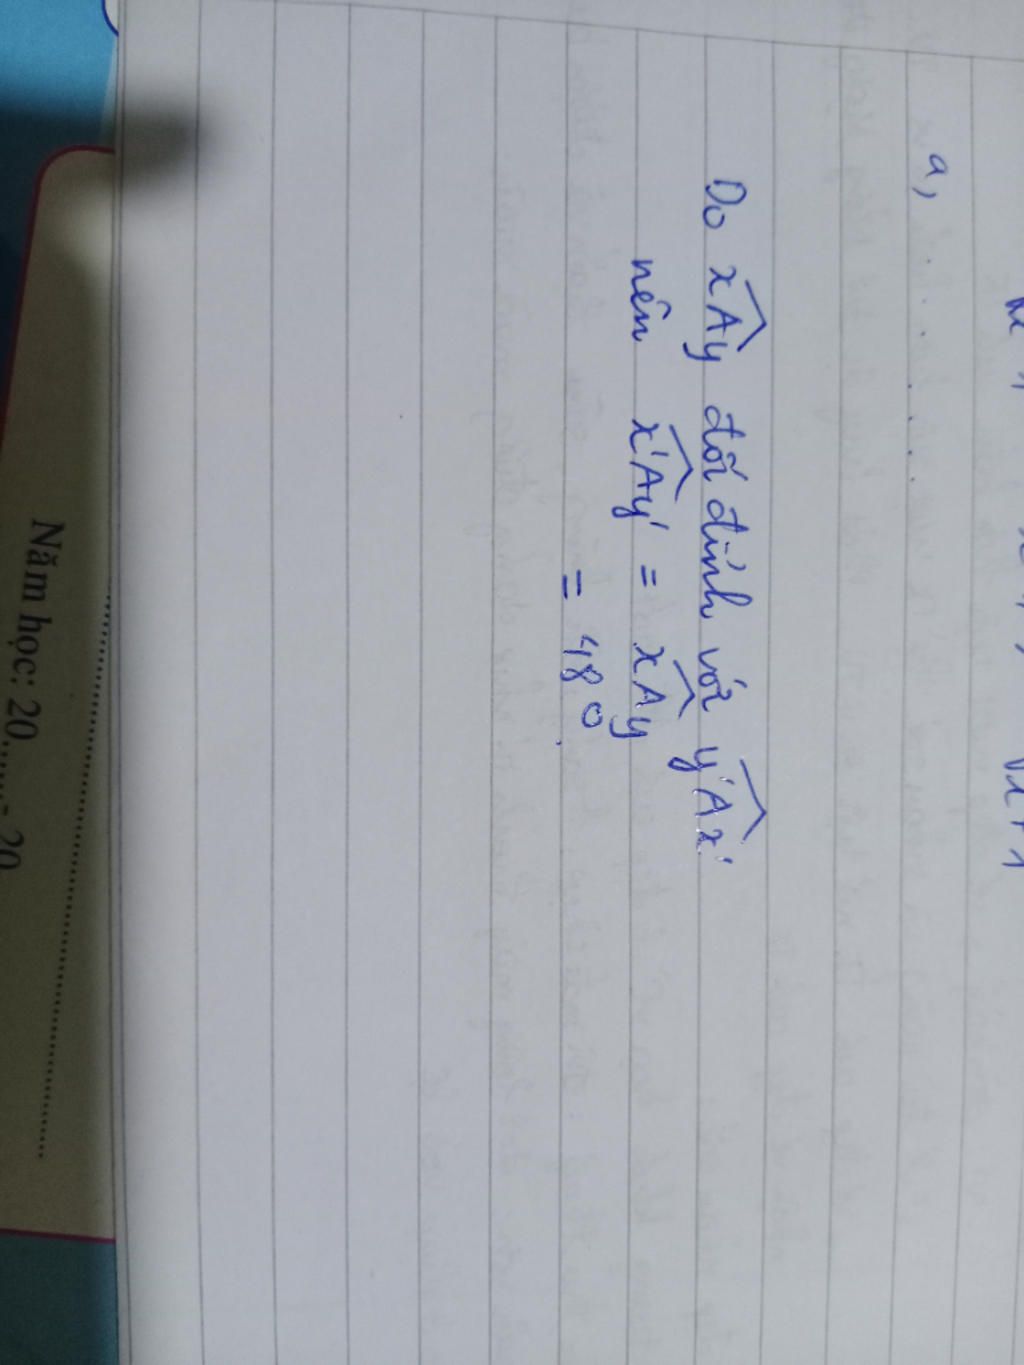 a, . . . . . .
Do xAy đối đỉnh với y'Ax'
nên x'Ay' = xAy
= 48°.
Năm học: 20......- 20